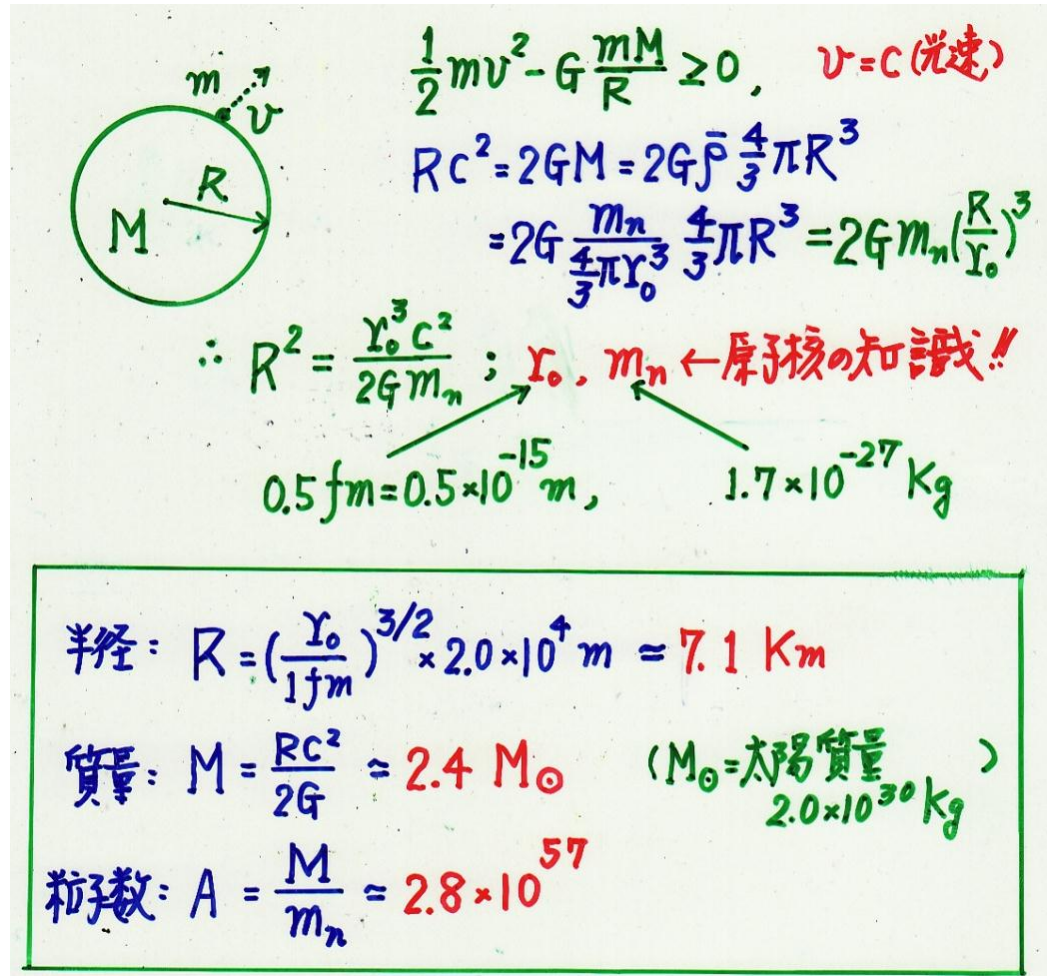 m
v
R
M
1/2 mv² - G mM/R ≥ 0, v = c (光速)
Rc² = 2GM = 2Gρ̄ 4/3 πR³
= 2G mₙ/(4/3 πr₀³) 4/3 πR³ = 2Gmₙ(R/r₀)³
∴ R² = r₀³c²/2Gmₙ ; r₀, mₙ ← 原子核の知識!!
0.5 fm = 0.5×10⁻¹⁵ m, 1.7×10⁻²⁷ Kg
半径: R = (r₀/1fm)^3/2 × 2.0×10⁴ m ≃ 7.1 Km
質量: M = Rc²/2G ≃ 2.4 M⊙ (M⊙=太陽質量 )
2.0×10³⁰ Kg
粒子数: A = M/mₙ ≃ 2.8×10⁵⁷